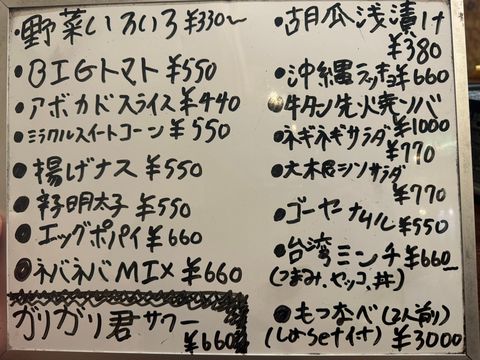 ・野菜いろいろ ¥330〜
・BIGトマト ¥550
・アボカドスライス ¥440
・ミラクルスイートコーン ¥550
・揚げナス ¥550
・辛子明太子 ¥550
・エッグポパイ ¥660
・ネバネバMIX ¥660
ガリガリ君サワー
¥660
・胡瓜浅漬け
¥380
・沖縄ラッキョ ¥660
・牛タン先火焼ソバ
¥1000
・ネギネギサラダ
¥770
・大根シソサラダ
¥770
・ゴーヤーナムル ¥550
・台湾ミンチ ¥660
(つまみ、セッコ、丼)
・もつなべ(2人前)
¥3000